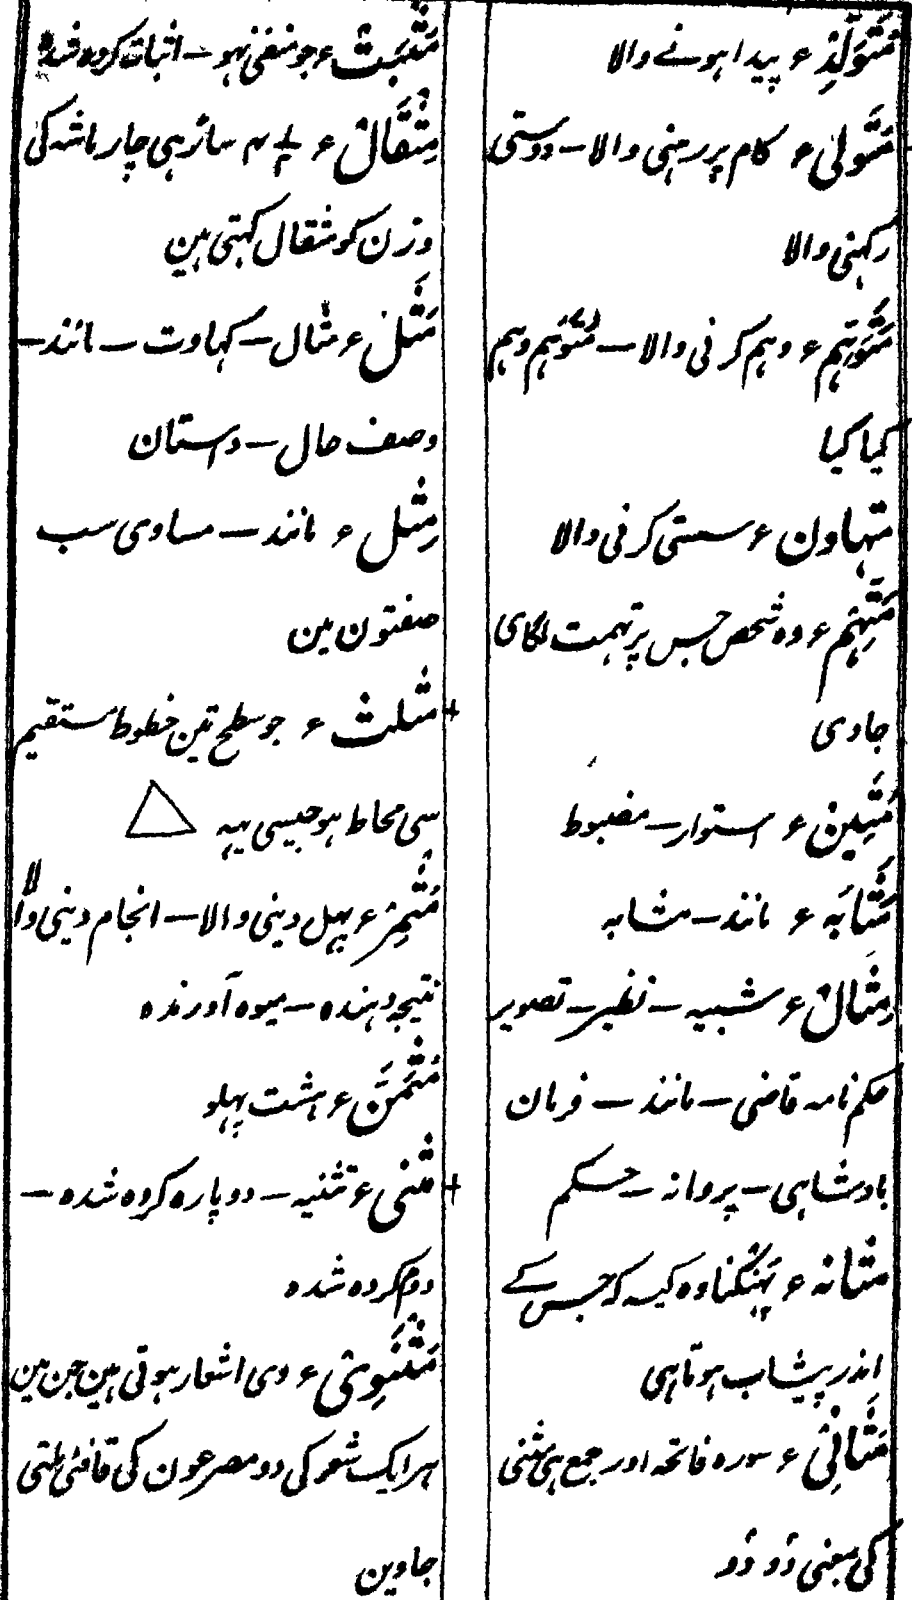 مُتَوَلِّدٌ ء پیدا ہونے والا
مُتَوَلِّی ء کام پر رہنی والا – دوستی
رکہنی والا
مُتَوَہِّم ء وہم کرنی والا – مُتَوَہَّم وہم
کیا گیا
متہاون ء سستی کرنی والا
مُتَّہَم ء وہ شخص جس پر تہمت لگای
جاوی
مَتِین ء استوار – مضبوط
مُتَشَابَہ ء مانند – مشابہ
مِثَالٌ ء شبیہ – نظیر – تصویر
حکم نامہ قاضی – مانند – فرمان
بادشاہی – پروانہ – حکم
مثانہ ء پہنکنا وہ کیسہ کہ جس کے
اندر پیشاب ہوتا ہی
مَثَانِی ء سورہ فاتحہ اور جمع ہی مثنی
کی بمعنی دُو دُو
مُثْبَتٌ ء جو منفی نہو – اثبات کردہ شدہ
مِثْقَالٌ ء ۴ ۱/۲ ساڑہی چار ماشہ کی
وزن کو مثقال کہتی ہین
مَثَلٌ ء مثال – کہاوت – مانند –
وصف حال – داستان
مِثْل ء مانند – مساوی سب
صفتون مین
مثلث ء جو سطح تین خطوط مستقیم
سی محاط ہو جیسی یہہ
مُثْمِرٌ ء پہل دینی والا – انجام دینی والا
نتیجہ دہندہ – میوہ آورندہ
مُثَمَّنٌ ء ہشت پہلو
مثنی ء تثنیہ – دوپارہ کردہ شدہ –
دوم کردہ شدہ
مَثْنَوِی ء وی اشعار ہوتی ہین جن مین
ہر ایک شعر کی دو مصرعون کی قافئی ملتی
جاوین